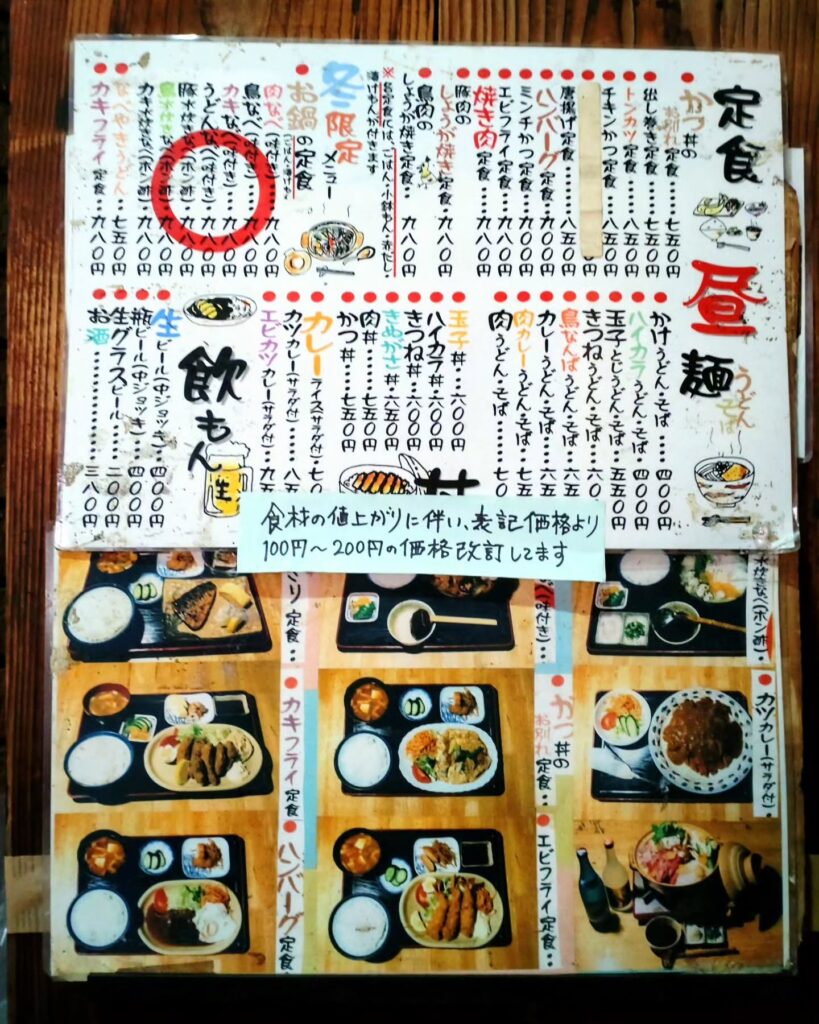 定食
昼
かつ丼の
お別れ定食‥‥七五〇円
出し巻き定食‥‥七五〇円
トンカツ定食‥‥八五〇円
チキンかつ定食‥‥九〇〇円
唐揚げ定食‥‥八五〇円
ハンバーグ定食‥‥九〇〇円
ミンチかつ定食‥‥九〇〇円
エビフライ定食‥‥九八〇円
焼き肉定食‥‥九八〇円
豚肉の
しょうが焼き定食‥‥九八〇円
鳥肉の
しょうが焼き定食‥‥九八〇円
※各定食には、ごはん・小鉢もん・赤だし・
漬けもんが付きます
冬限定
メニュー
お鍋の定食
(ごはん・漬けも
肉なべ(味付き)‥‥九八〇円
鳥なべ(味付き)‥‥九八〇円
カキなべ(味付き)‥‥九八〇円
うどんなべ(味付き)‥‥九八〇円
豚水炊きなべ(ポン酢)‥‥九八〇円
鳥水炊きなべ(ポン酢)‥‥九八〇円
カキ水炊きなべ(ポン酢)‥‥九八〇円
なべやきうどん‥‥七五〇円
カキフライ定食‥‥九八〇円
麺
うどん
そば
かけうどん・そば‥‥四〇〇円
ハイカラうどん・そば‥‥四五〇円
玉子とじうどん・そば‥‥五五〇円
きつねうどん・そば‥‥
鳥なんばうどん・そば‥‥
カレーうどん・そば‥‥
肉カレーうどん・そば‥‥
肉うどん・そば‥‥
丼
玉子丼‥‥六〇〇円
ハイカラ丼‥‥六〇〇円
きつね丼‥‥六〇〇円
きぬがさ丼‥‥六五〇円
肉丼‥‥七五〇円
かつ丼‥‥七五〇円
カレーライス(サラダ付)‥‥
カツカレー(サラダ付)‥‥
エビカツカレー(サラダ付)‥‥
飲もん
生ビール(中ジョッキ)‥‥四〇〇円
瓶ビール(中ジョッキ)‥‥四〇〇円
生グラスビール‥‥二〇〇円
お酒‥‥三八〇円
生
食材の値上がりに伴い、表記価格より
100円〜200円の価格改訂してます
水炊きなべ(ポン酢)‥
(味付き)‥
定食‥
カツカレー(サラダ付)‥
かつ丼の
お別れ定食‥
カキフライ定食
エビフライ定食‥
ハンバーグ定食